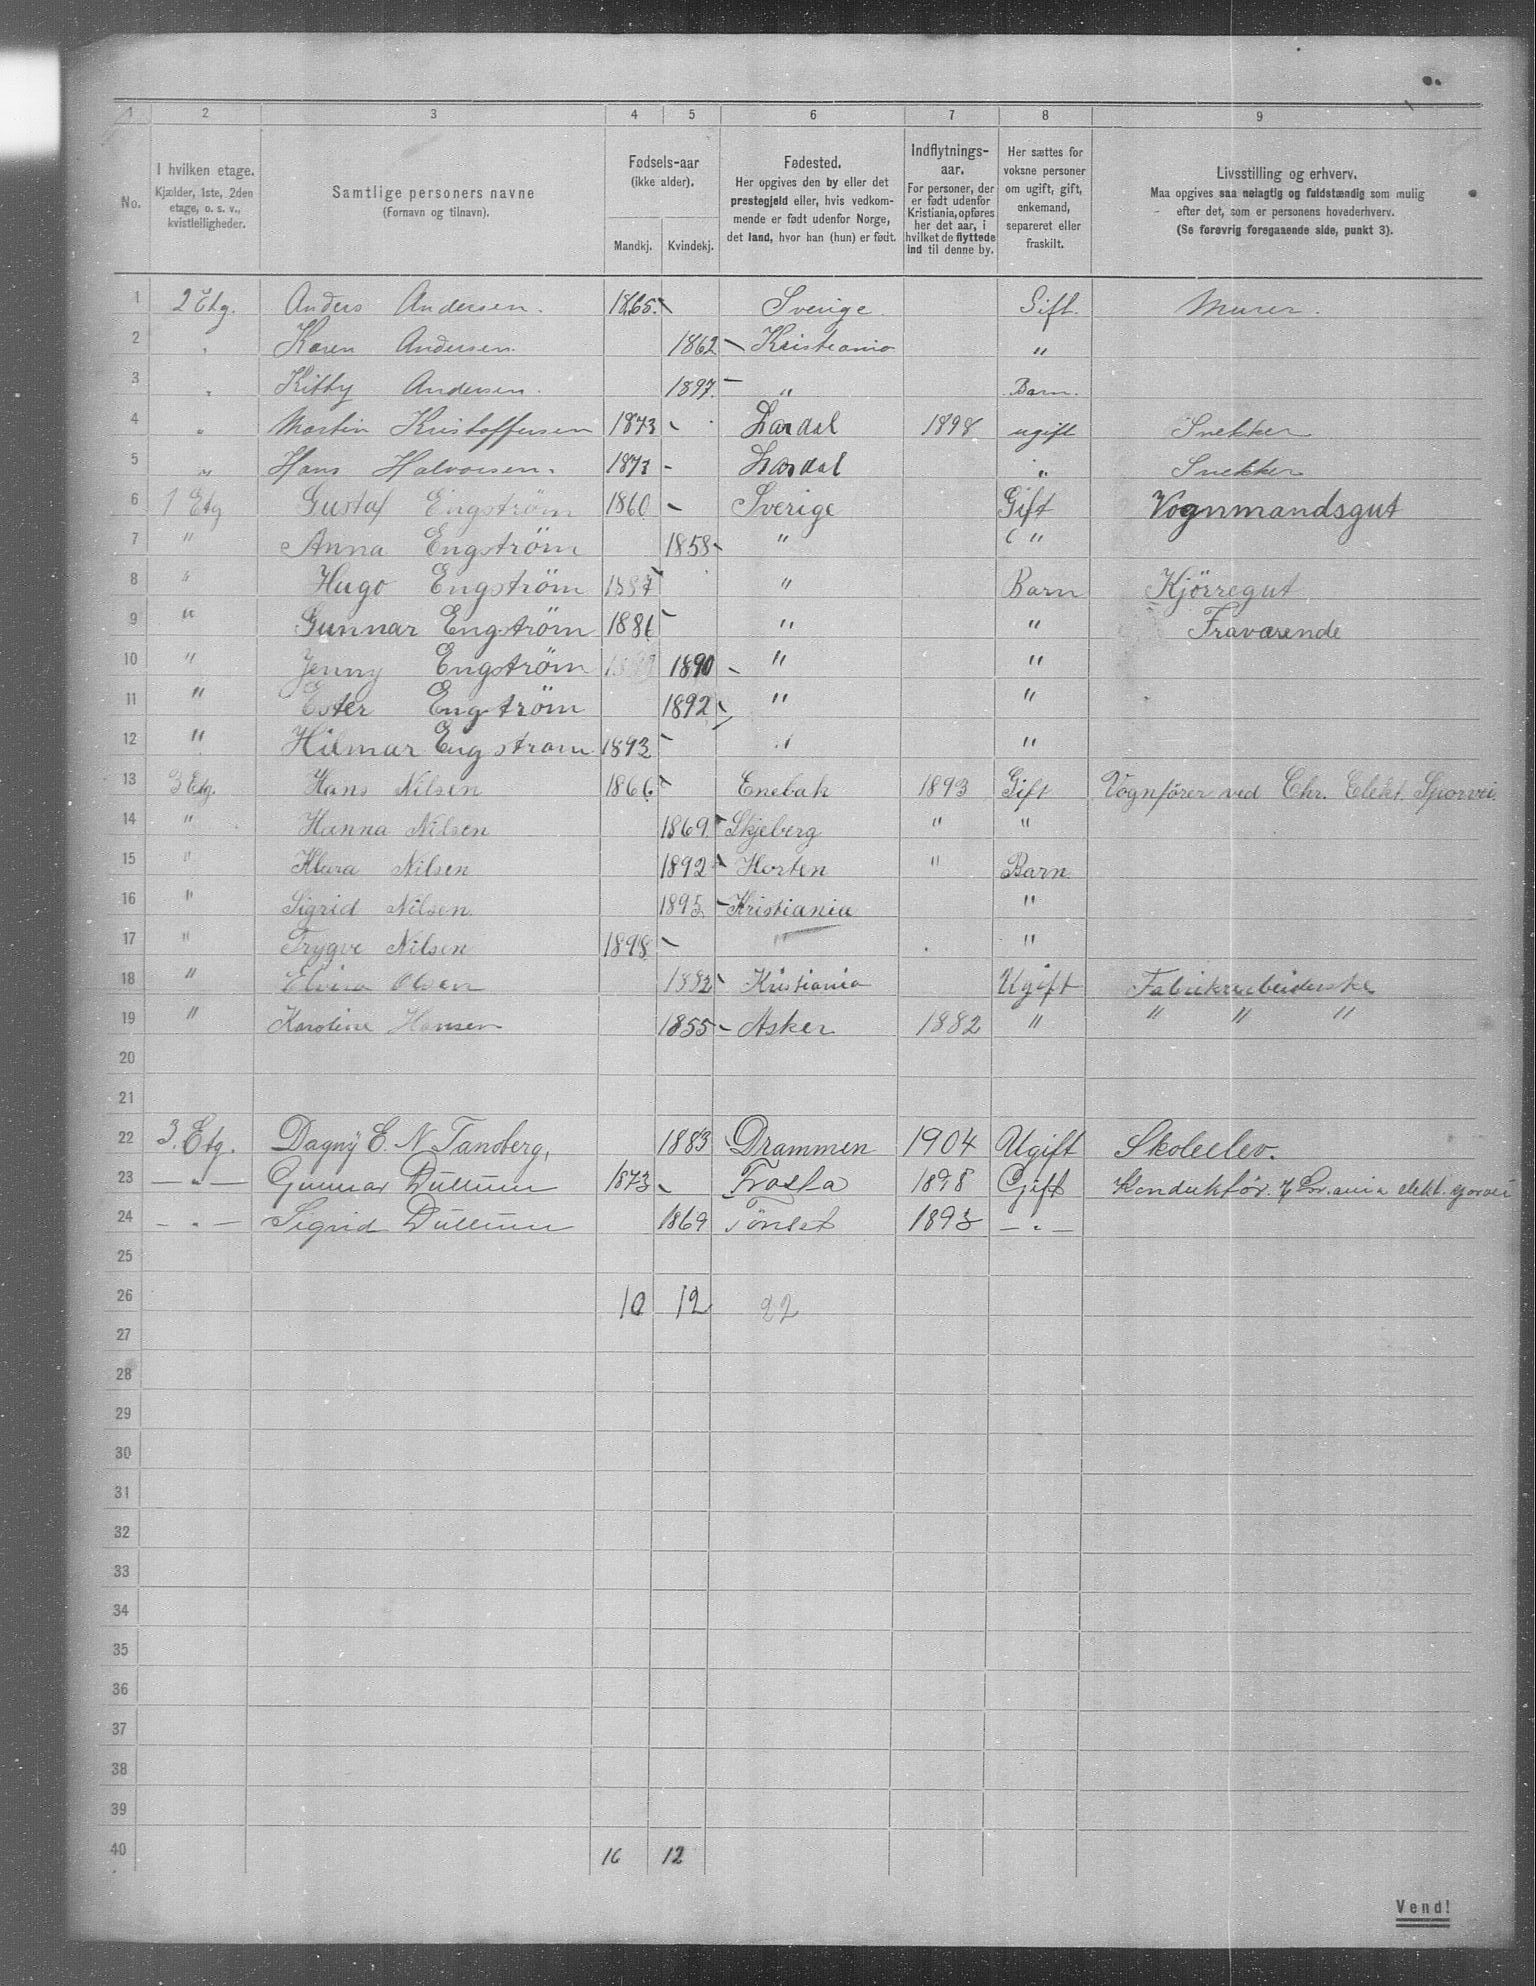 1 2 3 4 5 6 7 8 9
No.
I hvilken etage.
Kjælder, 1ste, 2den
etage, o. s. v.,
kvistleiligheder.
Samtlige personers navne
(Fornavn og tilnavn).
Fødsels-aar
(ikke alder).
Mandkj. Kvindekj.
Fødested.
Her opgives den by eller det
prestegjeld eller, hvis vedkom-
mende er født udenfor Norge,
det land, hvor han (hun) er født.
Indflytnings-
aar.
For personer, der
er født udenfor
Kristiania, opføres
her det aar, i
hvilket de flyttede
ind til denne by.
Her sættes for
voksne personer
om ugift, gift,
enkemand,
separeret eller
fraskilt.
Livsstilling og erhverv.
Maa opgives saa nøiagtig og fuldstændig som mulig
efter det, som er personens hovederhverv.
(Se forøvrig foregaaende side, punkt 3).
1 2 Etg. Anders Andersen. 1865. Sverige. Gift. Murer.
2 " Karen Andersen. 1862 Kristiania "
3 " Kitty Andersen. 1897. " Barn.
4 " Martin Kristoffersen 1873 Lardal 1898 ugift Snekker
5 " Hans Halvorsen. 1873 Lardal " Snekker
6 1 Etg Gustaf Engström 1860 Sverige Gift Vognmandsgut
7 " Anna Engström 1858 " "
8 " Hugo Engström 1887 " Barn Kjörregut
9 " Gunnar Engström 1886 " " Fraværende
10 " Jenny Engström 1890 " "
11 " Ester Engström 1892 " "
12 " Hilmar Engstrom 1893 " "
13 3 Etg. Hans Nilsen 1866 Enebak 1893 Gift Vognfører ved Chr. Elekt. Sporvei.
14 " Hanna Nilsen 1869 Skjeberg " "
15 " Klara Nilsen 1892 Horten " Barn
16 " Sigrid Nilsen 1895 Kristiania "
17 " Trygve Nilsen 1898 " "
18 " Elvira Olsen 1882 Kristiania Ugift Fabrikarbeiderske
19 " Karoline Hansen 1855 Asker 1882 " " " "
20
21
22 3. Etg. Dagny E. N Tandberg, 1883 Drammen 1904 Ugift Skoleelev.
23 — " — Gunnar Dullum 1873 Frosta 1898 Gift Konduktør. elekt. sporvei
24 — " — Sigrid Dullum 1869 Tönset 1893 — " —
25
26 10 12 22
27
28
29
30
31
32
33
34
35
36
37
38
39
40 16 12
Vend!